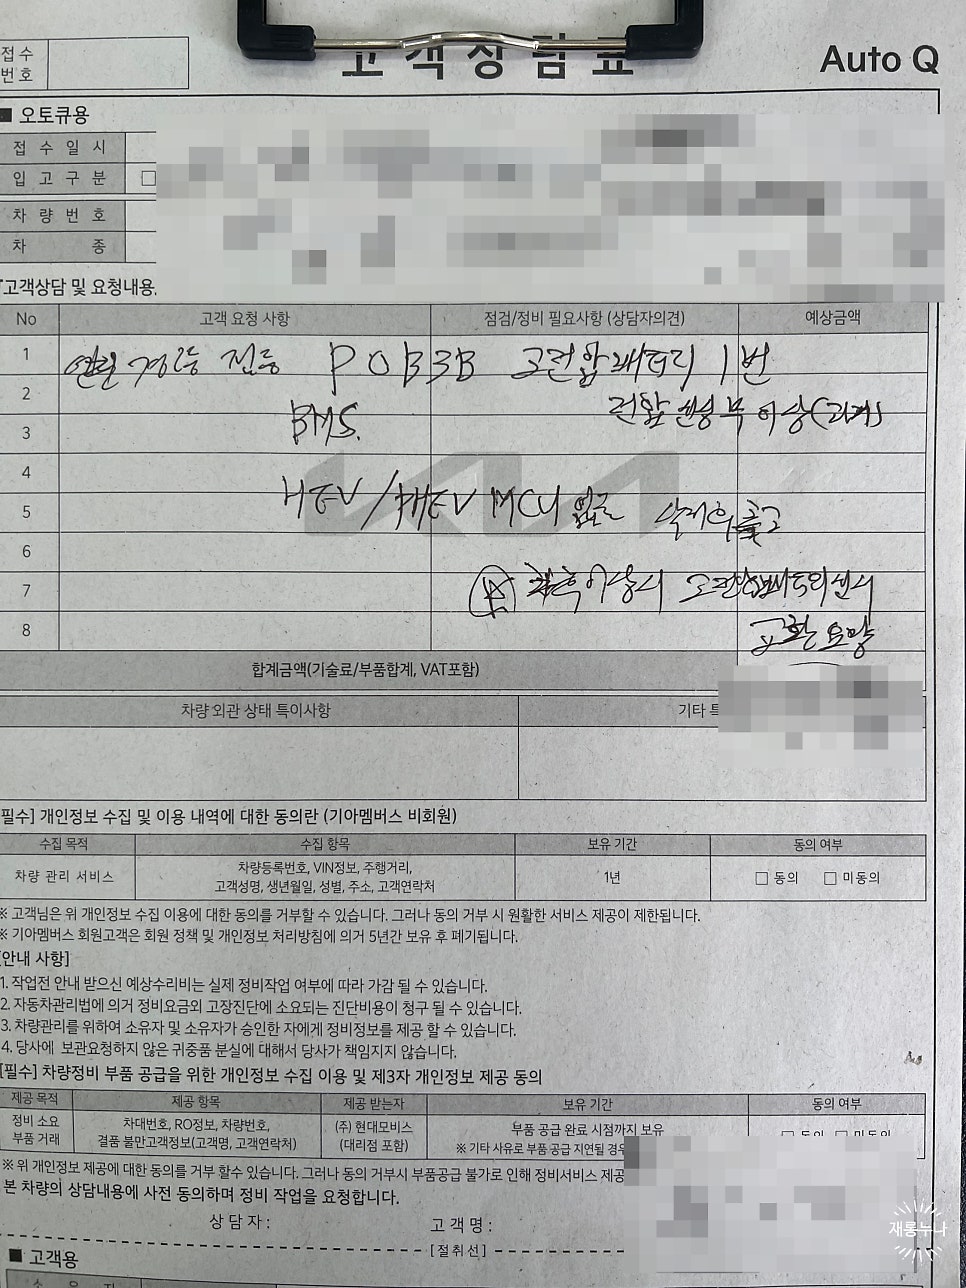 접수
번호
고객상담표
Auto Q
■ 오토큐용
접 수 일 시
입 고 구 분 □
차 량 번 호
차 종
고객상담 및 요청내용
No 고객 요청 사항 점검/정비 필요사항 (상담자의견) 예상금액
1 엔진 경고등 점등 P0B3B 고전압배터리 1번
2 전압 센싱부 이상(과거)
3 BMS.
4
5 HEV/PHEV MCU 없음 삭제후 출고
6
7 이상시 고전압배터리
8 교환 요망
합계금액(기술료/부품합계, VAT포함)
차량 외관 상태 특이사항 기타 특
필수] 개인정보 수집 및 이용 내역에 대한 동의란 (기아멤버스 비회원)
수집 목적 수집 항목 보유 기간 동의 여부
차량 관리 서비스 차량등록번호, VIN정보, 주행거리, 1년 □ 동의 □ 미동의
고객성명, 생년월일, 성별, 주소, 고객연락처
※ 고객님은 위 개인정보 수집 이용에 대한 동의를 거부할 수 있습니다. 그러나 동의 거부 시 원활한 서비스 제공이 제한됩니다.
※ 기아멤버스 회원고객은 회원 정책 및 개인정보 처리방침에 의거 5년간 보유 후 폐기됩니다.
[안내 사항]
1. 작업전 안내 받으신 예상수리비는 실제 정비작업 여부에 따라 가감 될 수 있습니다.
2. 자동차관리법에 의거 정비요금외 고장진단에 소요되는 진단비용이 청구 될 수 있습니다.
3. 차량관리를 위하여 소유자 및 소유자가 승인한 자에게 정비정보를 제공 할 수 있습니다.
4. 당사에 보관요청하지 않은 귀중품 분실에 대해서 당사가 책임지지 않습니다.
[필수] 차량정비 부품 공급을 위한 개인정보 수집 이용 및 제3자 개인정보 제공 동의
제공 목적 제공 항목 제공 받는자 보유 기간 동의 여부
정비 소요 차대번호, RO정보, 차량번호, (주) 현대모비스 부품 공급 완료 시점까지 보유 □ 동의 □ 미동의
부품 거래 결품 불만고객정보(고객명, 고객연락처) (대리점 포함) ※ 기타 사유로 부품 공급 지연될 경우
※ 위 개인정보 제공에 대한 동의를 거부 할수 있습니다. 그러나 동의 거부시 부품공급 불가로 인해 정비서비스 제공
본 차량의 상담내용에 사전 동의하며 정비 작업을 요청합니다.
상 담 자 : 고 객 명 :
[절취선]
■ 고객용
소 유 자
재롱누나